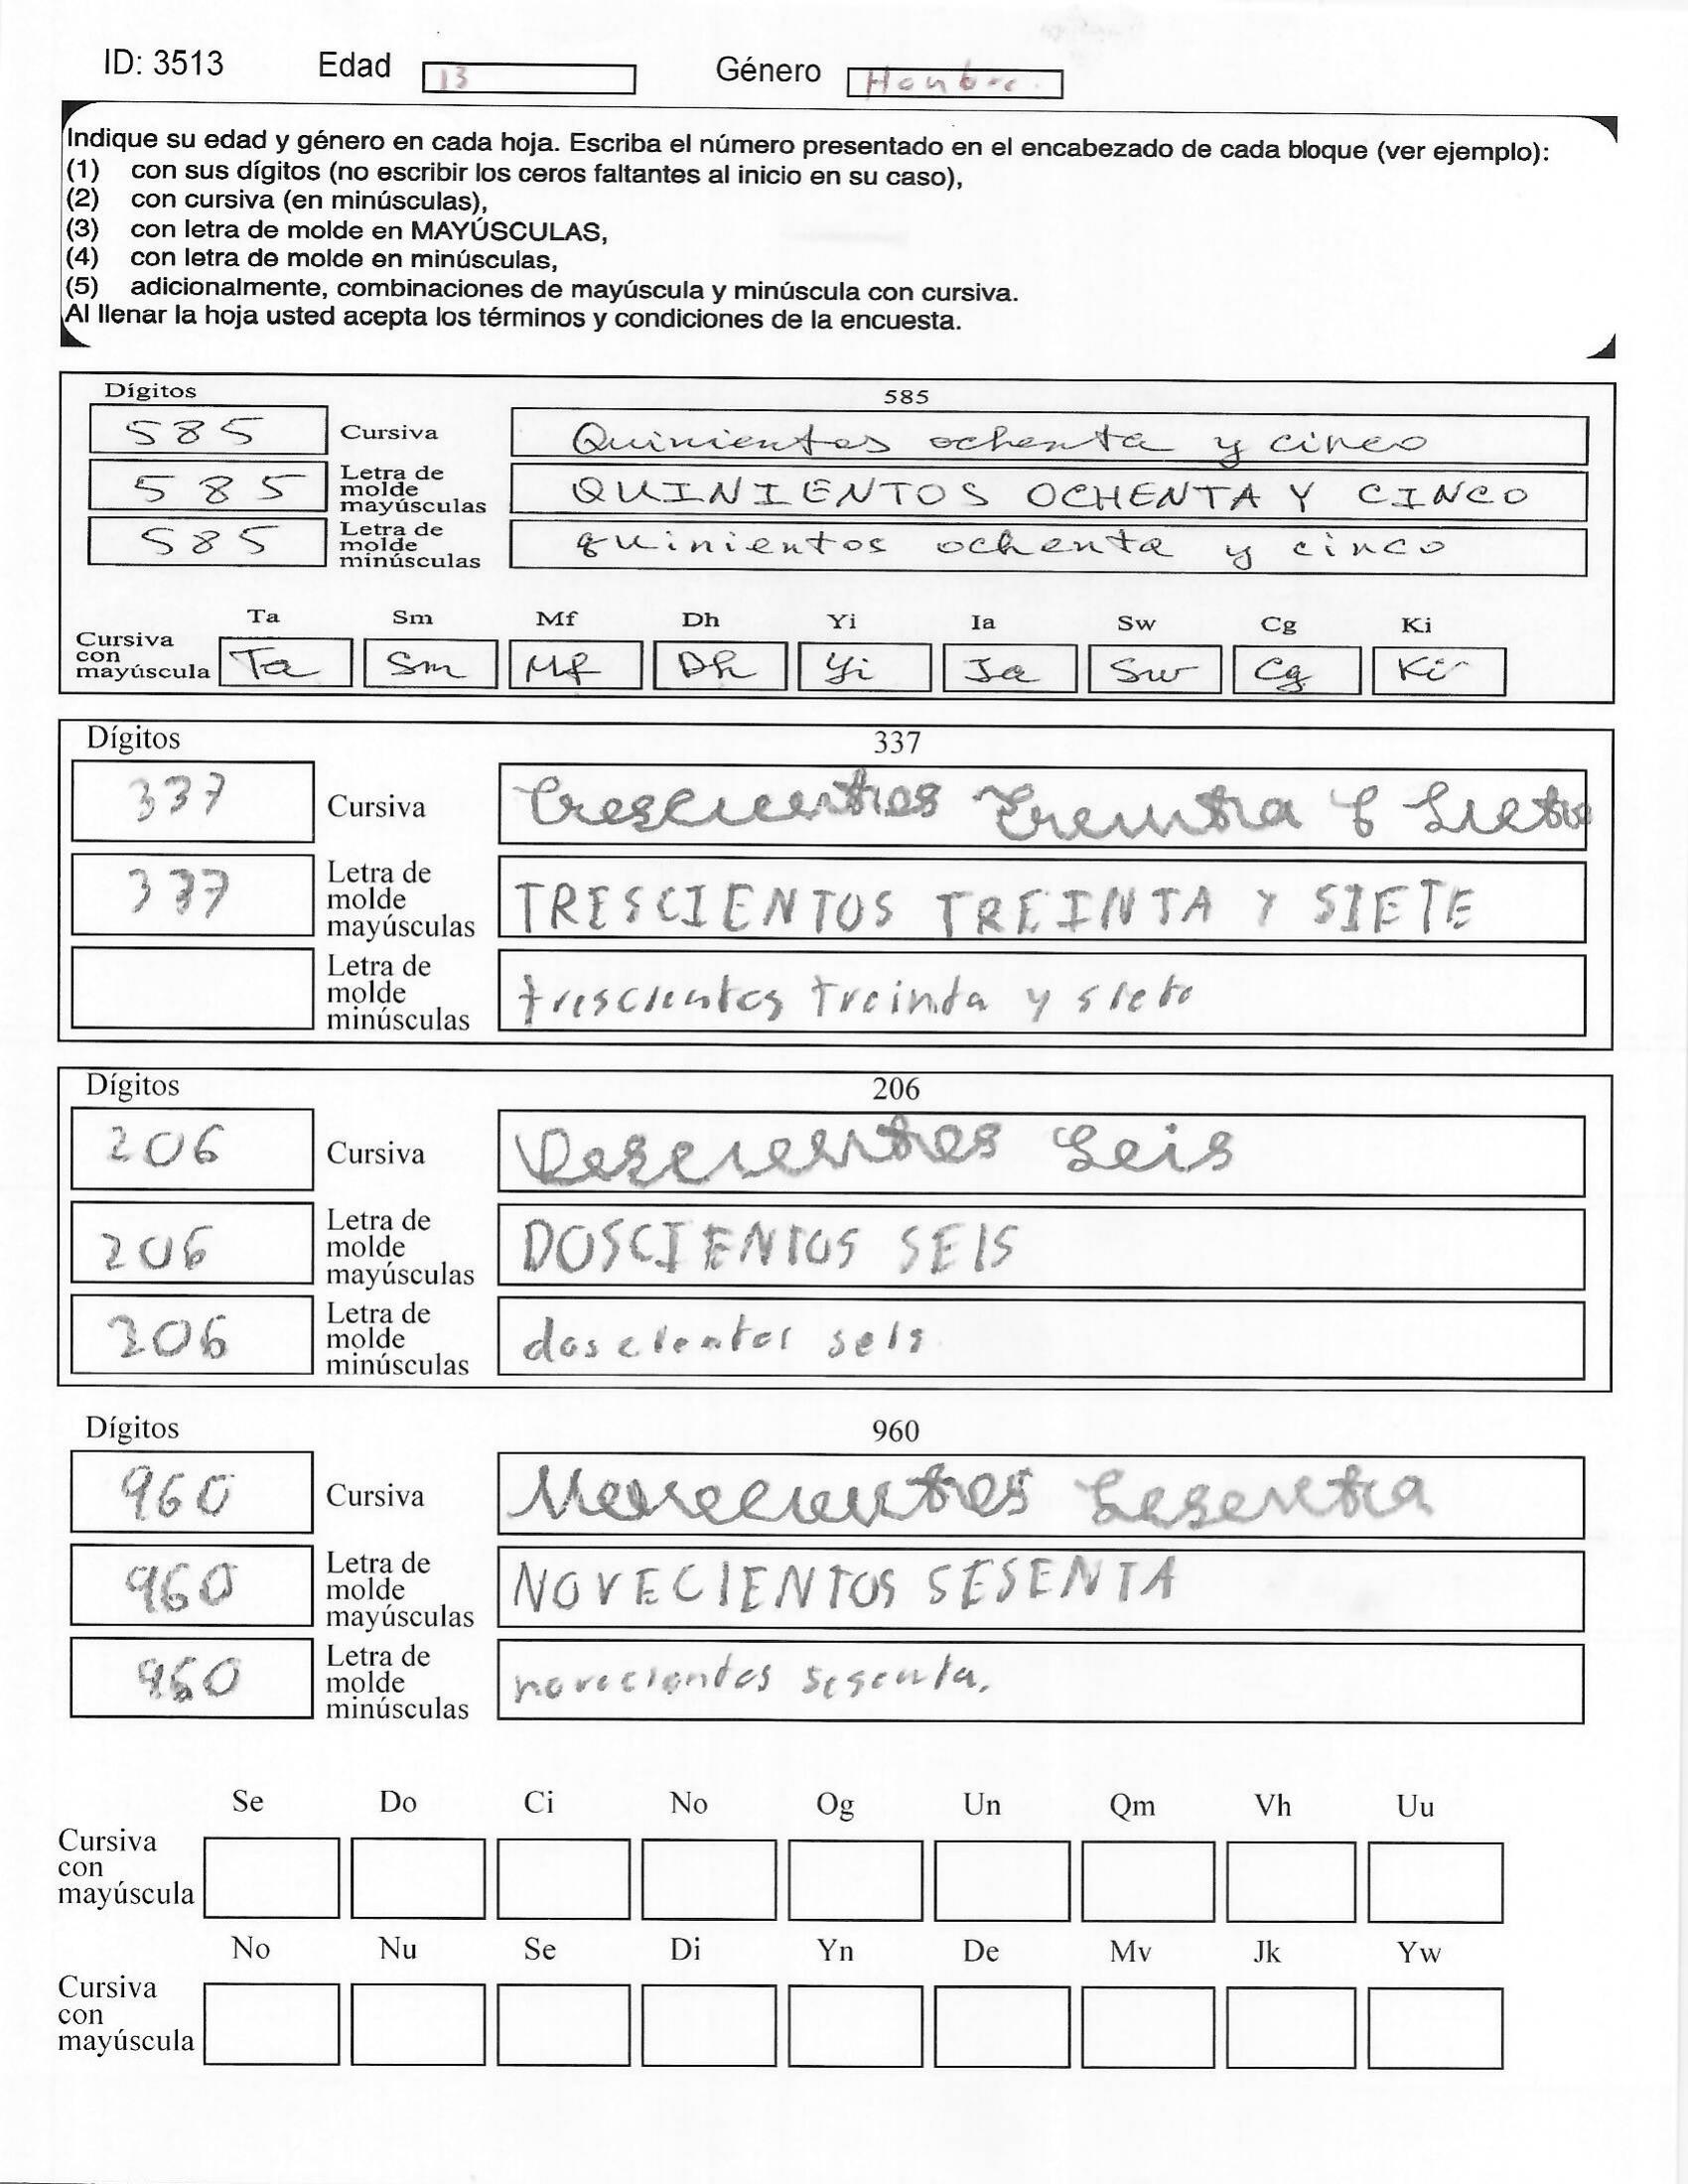 ID: 3513 Edad 13 Género Hombre.
Indique su edad y género en cada hoja. Escriba el número presentado en el encabezado de cada bloque (ver ejemplo):
(1) con sus dígitos (no escribir los ceros faltantes al inicio en su caso),
(2) con cursiva (en minúsculas),
(3) con letra de molde en MAYÚSCULAS,
(4) con letra de molde en minúsculas,
(5) adicionalmente, combinaciones de mayúscula y minúscula con cursiva.
Al llenar la hoja usted acepta los términos y condiciones de la encuesta.
Dígitos 585
585 Cursiva Quinientos ochenta y cinco
585 Letra de molde mayúsculas QUINIENTOS OCHENTA Y CINCO
585 Letra de molde minúsculas quinientos ochenta y cinco
Ta Sm Mf Dh Yi Ia Sw Cg Ki
Cursiva con mayúscula Ta Sm Mf Dh Yi Ia Sw Cg Ki
Dígitos 337
337 Cursiva Trescientos Treinta y Siete
337 Letra de molde mayúsculas TRESCIENTOS TREINTA Y SIETE
Letra de molde minúsculas trescientos treinta y siete
Dígitos 206
206 Cursiva Doscientos Seis
206 Letra de molde mayúsculas DOSCIENTOS SEIS
206 Letra de molde minúsculas doscientos seis
Dígitos 960
960 Cursiva Novecientos Sesenta
960 Letra de molde mayúsculas NOVECIENTOS SESENTA
960 Letra de molde minúsculas novecientos sesenta.
Se Do Ci No Og Un Qm Vh Uu
Cursiva con mayúscula
No Nu Se Di Yn De Mv Jk Yw
Cursiva con mayúscula